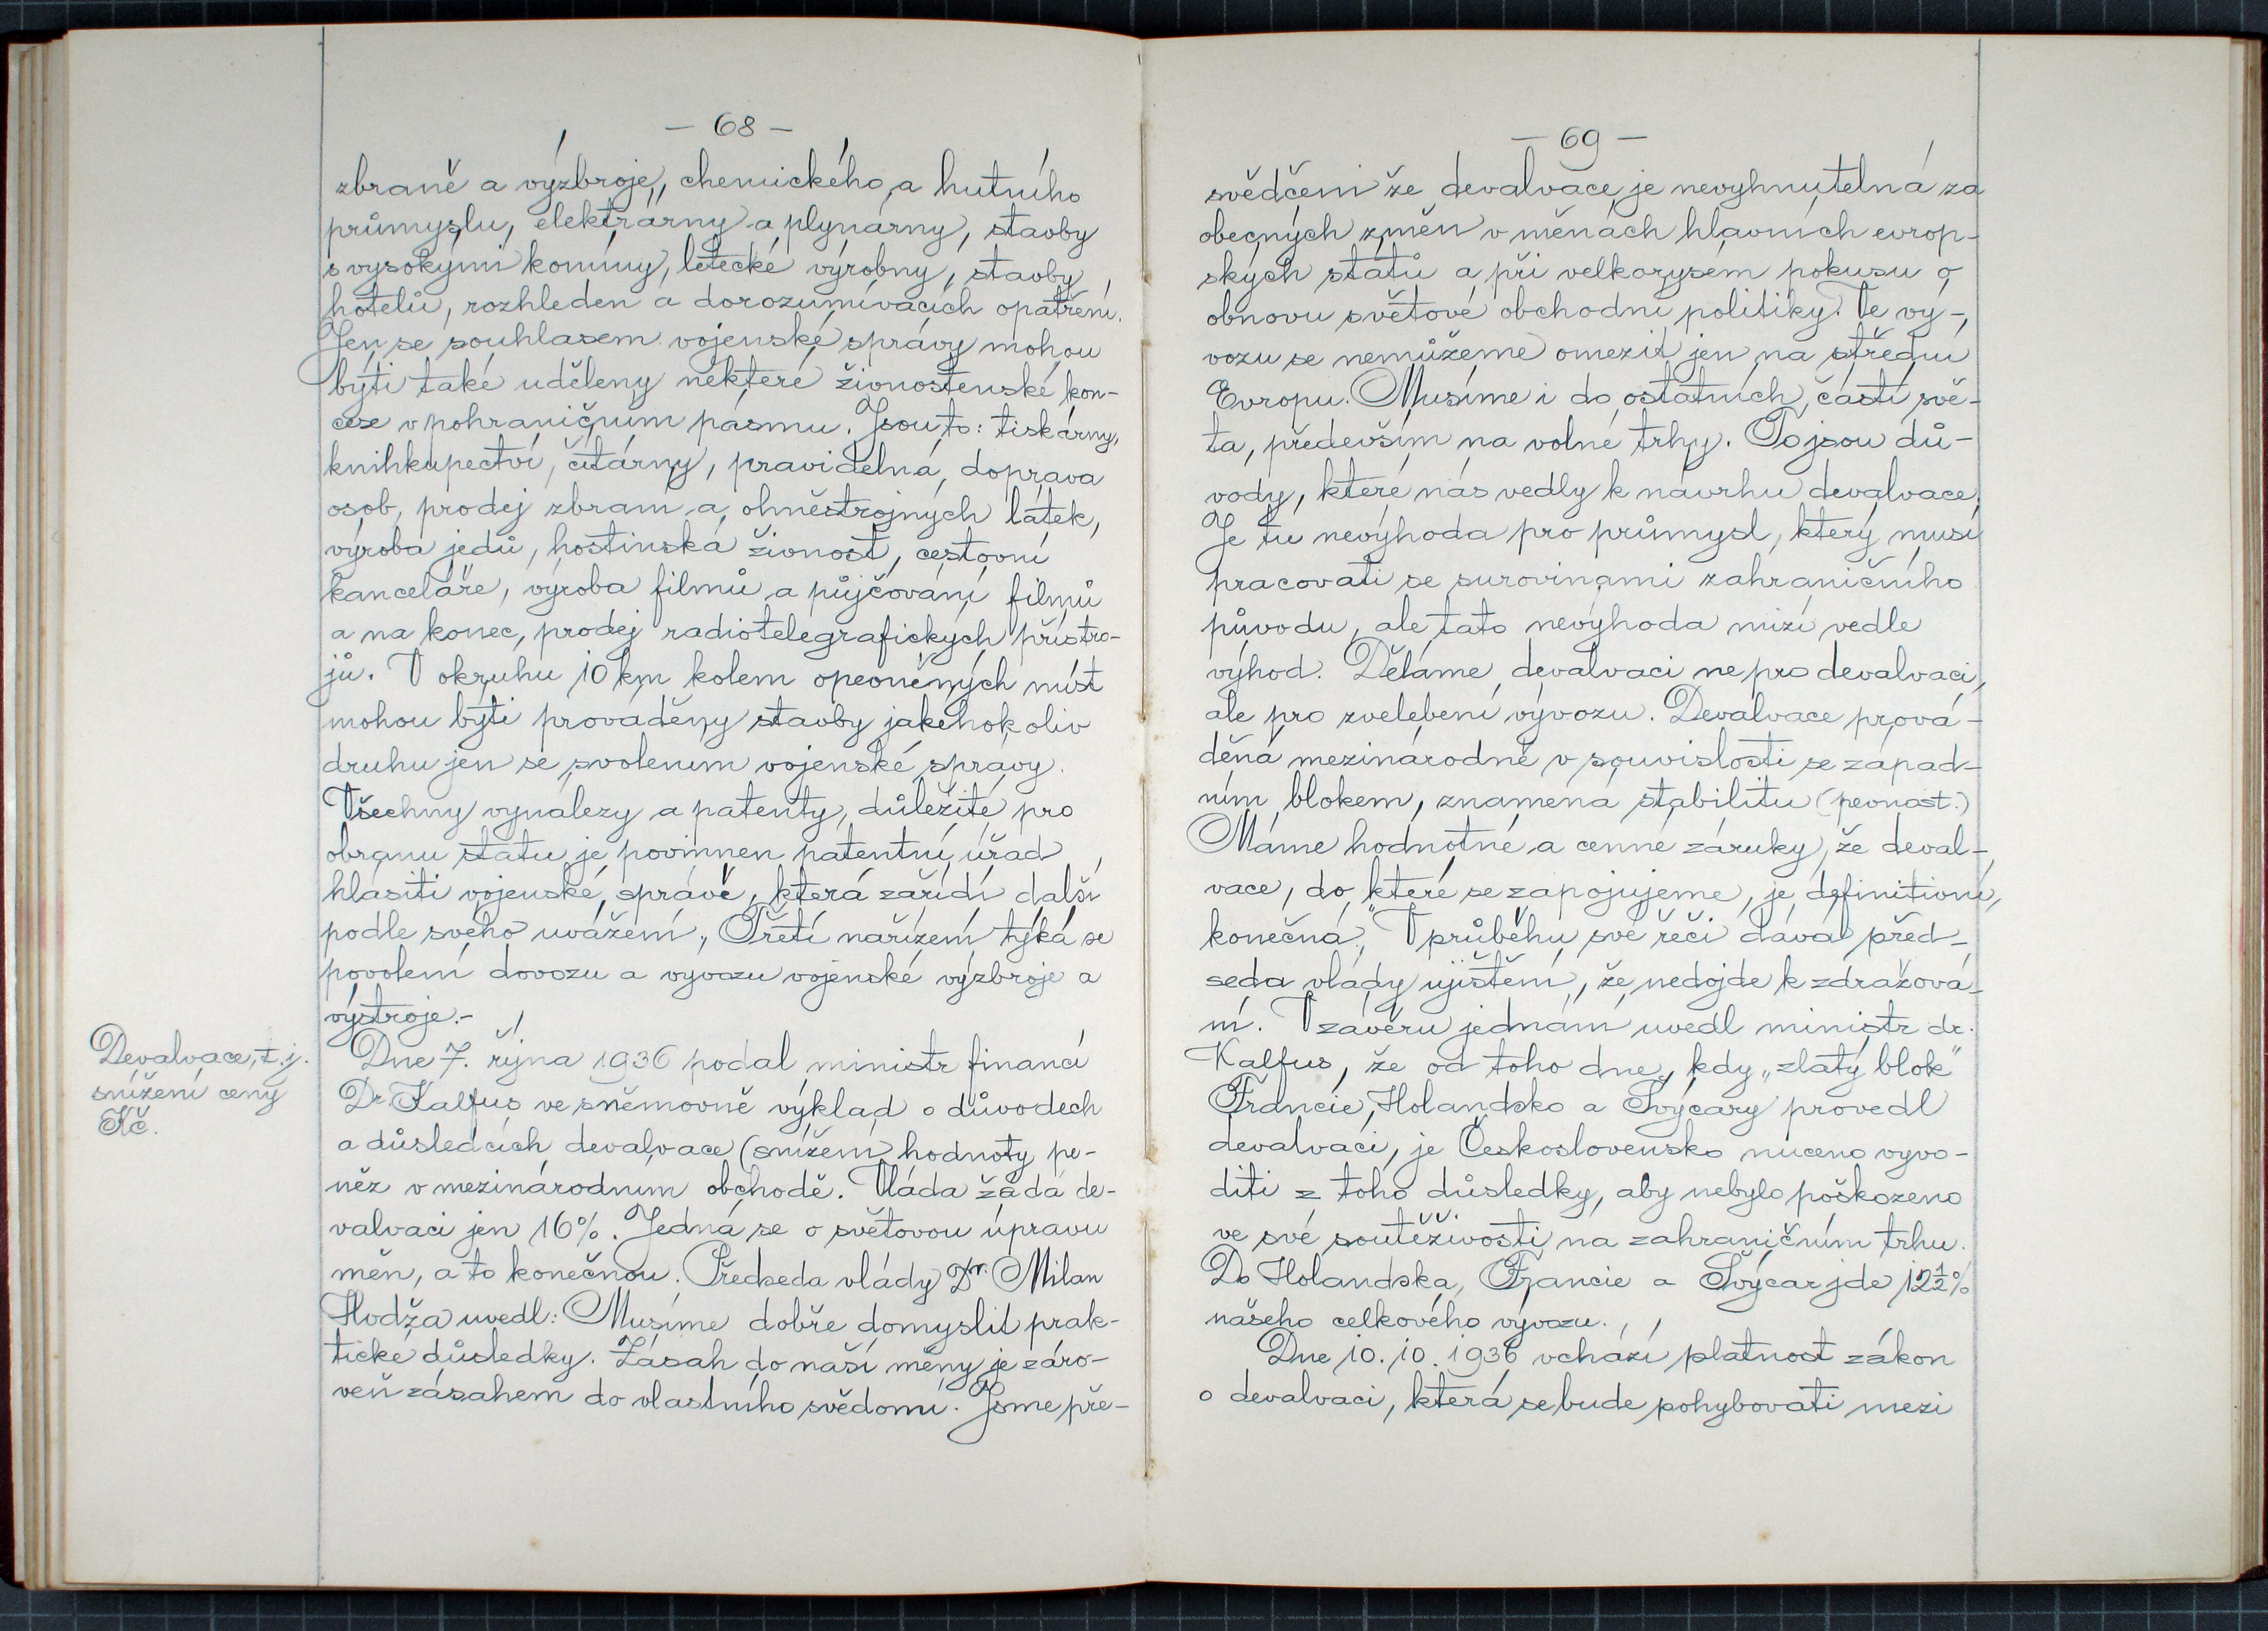 - 68 -
zbraně a výzbroje, chemického a hutního
průmyslu, elektrárny a plynárny, stavby
s vysokými komíny, letecké výrobny, stavby
hotelů, rozhleden a dorozumívacích opatření.
Jen se souhlasem vojenské správy mohou
býti také uděleny některé živnostenské kon-
cese v pohraničním pásmu. Jsou to: tiskárny,
knihkupectví, čítárny, pravidelná doprava
osob, prodej zbraní a ohněstrojných látek,
výroba jedů, hostinská živnost, cestovní
kanceláře, výroba filmů a půjčování filmů
a na konec, prodej radiotelegrafických přístro-
jů. V okruhu 10 km kolem opevněných míst
mohou býti prováděny stavby jakéhokoliv
druhu jen se svolením vojenské správy.
Všechny vynálezy a patenty, důležité pro
obranu státu je povinnen patentní úřad
hlásiti vojenské správě, která zařídí další
podle svého uvážení. Třetí nařízení týká se
povolení dovozu a vývozu vojenské výzbroje a
výstroje.-
Devalvace, t. j.
snížení ceny
Kč.
Dne 7. října 1936 podal ministr financí
Dr. Kalfus ve sněmovně výklad o důvodech
a důsledcích devalvace (snížení hodnoty pe-
něz v mezinárodním obchodě. Vláda žádá de-
valvaci jen 16%. Jedná se o světovou úpravu
měn, a to konečnou. Předseda vlády Dr. Milan
Hodža uvedl: Musíme dobře domyslit prak-
tické důsledky. Zásah do naší měny je záro-
veň zásahem do vlastního svědomí. Jsme pře-
- 69 -
svědčeni že devalvace je nevyhnutelná za
obecných změn v měnách hlavních evrop-
ských států a při velkorysém pokusu o
obnovu světové obchodní politiky. Ve vý-
vozu se nemůžeme omezit jen na střední
Evropu. Musíme i do ostatních částí svě-
ta, především na volné trhy. To jsou dů-
vody, které nás vedly k návrhu devalvace.
Je tu nevýhoda pro průmysl, který musí
pracovati se surovinami zahraničního
původu, ale tato nevýhoda mizí vedle
výhod. Děláme devalvaci ne pro devalvaci,
ale pro zvelebení vývozu. Devalvace prová-
děná mezinárodně v souvislosti se západ-
ním blokem, znamená stabilitu (pevnost.)
Máme hodnotné a cenné záruky, že deval-
vace, do které se zapojujeme, je definitivní,
konečná." V průběhu své řeči dává před-
seda vlády ujištění, že nedojde k zdražová-
ní. V závěru jednání uvedl ministr dr.
Kalfus, že od toho dne, kdy „zlatý blok"
Francie, Holandsko a Švýcary provedl
devalvaci, je Československo nuceno vyvo-
diti z toho důsledky, aby nebylo poškozeno
ve své soutěživosti na zahraničním trhu.
Do Holandska, Francie a Švýcar jde 12½%
našeho celkového vývozu.
Dne 10. 10. 1936 vchází platnost zákon
o devalvaci, která se bude pohybovati mezi